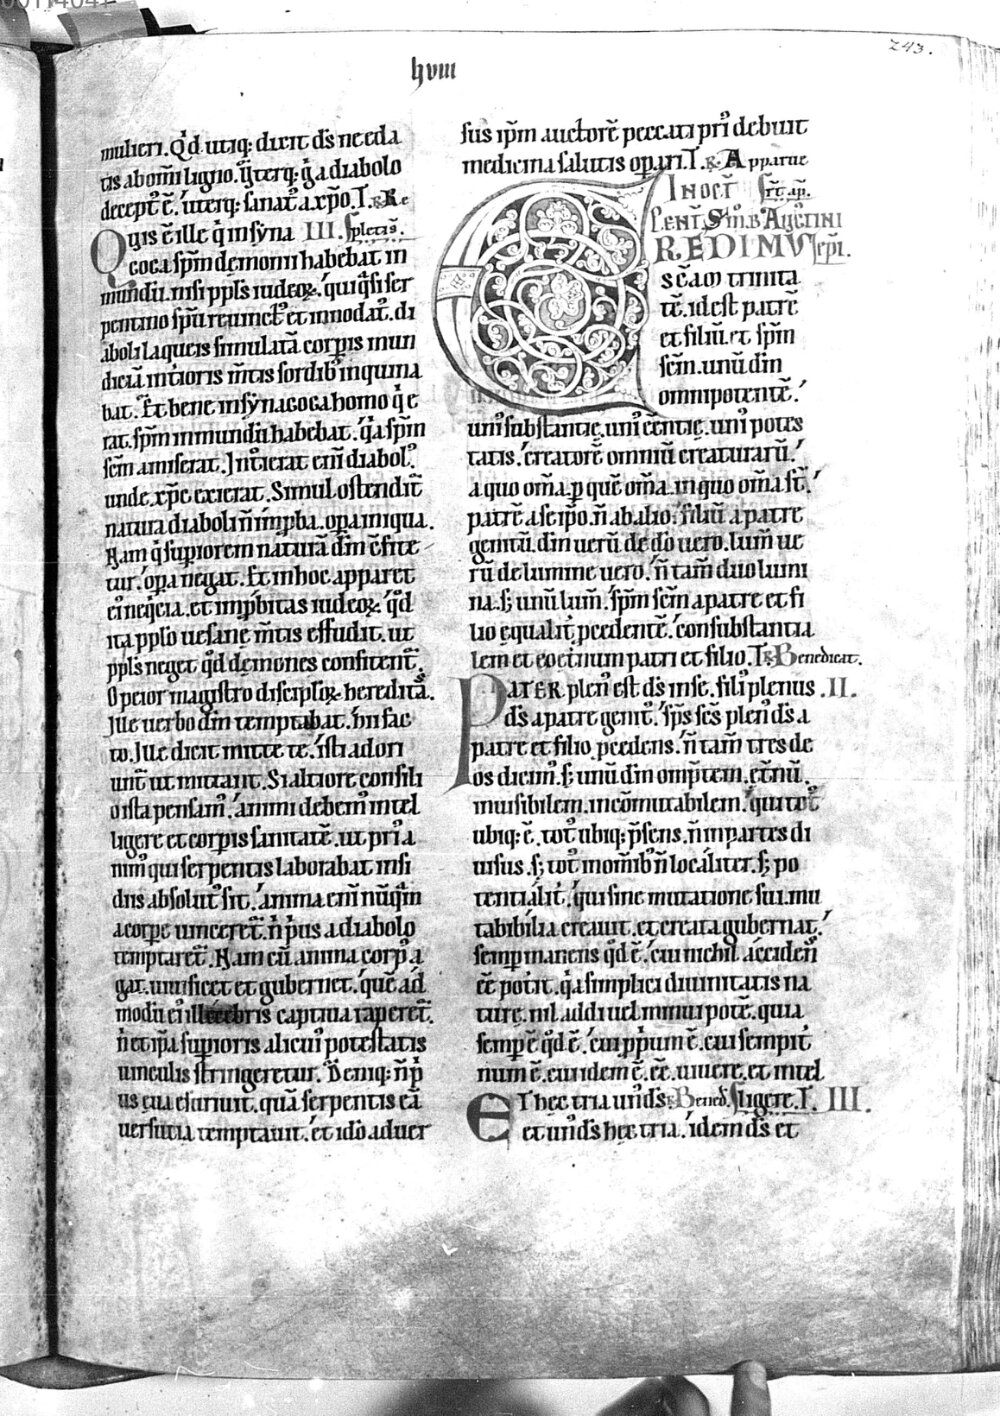 243.
lviii
mulieri. Qd̕ utiq; dixit ds̄ ne eda
tis ab om̄i ligno. Ut̄erq; q̇a diabolo
decept᷒ ē. uterq; sanat᷒ a xp̄o. T. R̄e
Quis ē ille q̇ in syna III. S pletis.
goga sp̄m demonii habebat in
mundū. nisi ppl̄s iudeoꝝ. qui q̇si ser
pentino spū reuinct᷒ et innodat᷒. di
aboli laqueis simulatā corpis mun
diciā int̄ioris m̄tis sordib᷒ inquina
bat. Et bene in synagoga homo q̇ e
rat. sp̄m inmundū habebat. q̇a sp̄m
sc̄m amiserat. Int̄ierat eni᷒ diabol᷒.
unde xp̄c exierat. Simul ostendit᷒
natura diaboli n̄ īmp̱ba. opa iniqua.
Nam q̇ supiorem naturā dn̄m c̄fite
tur. opa negat. Et in hoc apparet
ei᷒ neq̇cia. et imp̱bitas iudeoꝝ. q̇d
ita ppl̄o uesanę m̄tis effudit. ut
ppl̄s neget q̇d demones confitent᷒.
O peior magistro discipl̄oꝝ hereditā.
Ille uerbo dn̄m temptabat. hn̄ fac
to. Ille dicit mitte te. isti adori
unt᷒ ut mittant. Si altiore consili
o ista pensam᷒. animi debem᷒ intel
ligere et corpis sanitatē. ut pri᷒ a
nim᷒ qui serpentis laborabat insi
diis absolut᷒ sit. anima eni᷒ nūq̄m
a corpe uinceret᷒. n̄ pri᷒us a diabolo
temptaret᷒. Nam cū anima corp᷒ a
gat. uiuificet et gubernet. quē ad
modū ei᷒ illecebris captiua raperet᷒.
n̄ et ip̄a supioris alicui᷒ potestatis
uinculis stringeretur. Deniq; n̄ pi᷒
us eua esuriuit. quā serpentis eā
uersutia temptauit. et ido᷒ aduer
sus ip̄m auctorē peccati pri᷒ debuit
medicina salutis opari. T. R̄. Apparue
IN OCT᷒ S̄rt ap̄.
PENT᷒. S̄m. B. Augustini
CREDIMUS ep̄i.
sc̄am trinita
tē. id est patrē
et filiū. et sp̄m
sc̄m. unū dn̄m
omnipotentē.
uni᷒ substantię. uni᷒ ēentię. uni᷒ potes
tatis. creatorē omniū creaturarū.
a quo om̄a. p̱ quē om̄a. in quo om̄a st̄.
patrē a seip̄o. n̄ ab alio. filiū a patre
genitū. dm̄ uerū de do᷒ uero. lum̄ ue
rū de lumine uero. n̄ tam̄ duo lumi
na. s; unū lum̄. sp̄m sc̄m a patre et fi
lio equalit᷒ pcedentē. consubstantia
lem et coet᷒num patri et filio. T. R̄ Benedicat.
PATER plen᷒ est ds̄ in se. fili᷒ plenus .II.
ds̄ a patre genit᷒. sp̄s sc̄s plen᷒ ds̄ a
patre et filio pcedens. n̄ tam̄ tres de
os dicim᷒. s; unū dm̄ omp̄tem. et᷒nū.
inuisibilem. incōmutabilem. qui tot᷒
ubiq; ē. tot᷒ ubiq; p̄sens. n̄ in partes di
uisus. s; tot᷒ in om̄ib᷒ n̄ localiter. s; po
tentialit᷒. qui sine mutatione sui mu
tabibilia creauit. et creata gubernat.
semp manens q̇d ē. cui nichil acciden᷒
ēe pot᷒it. q̇a simplici diuinitatis na
turę. nil addi uel minui potē. quia
semp ē q̇d ē. cui p̱prium ē. cui sempit᷒
num ē. cui idem ē. ēe. uiuere. et intel
ET hec tria un᷒ ds̄. Bened. S ligere. T. III.
et un᷒ ds̄ hec tria. idem ds̄ et